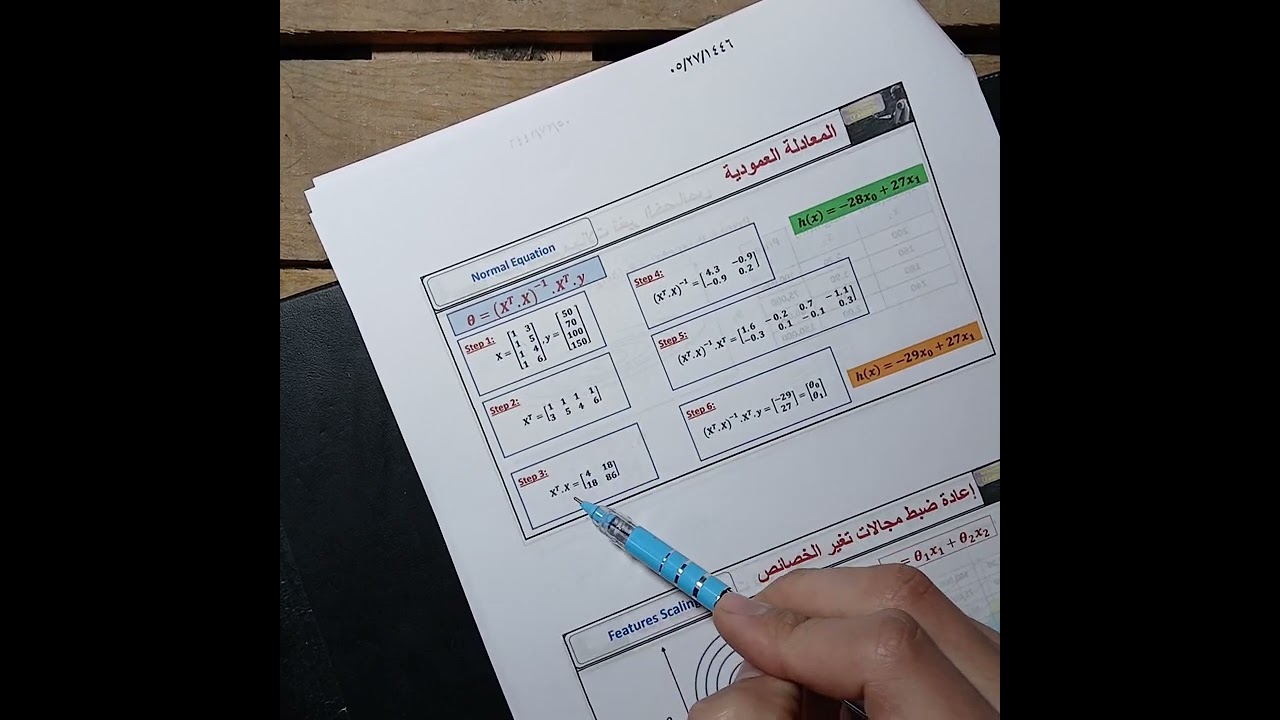 ٠٥/٢٧/١٤٤٦
المعادلة العمودية
Normal Equation
h(x) = −28x₀ + 27x₁
θ = (Xᵀ.X)⁻¹.Xᵀ.y
Step 1:
X = [1 3; 1 5; 1 4; 1 6], y = [50; 70; 100; 150]
Step 2:
Xᵀ = [1 1 1 1; 3 5 4 6]
Step 3:
Xᵀ.X = [4 18; 18 86]
Step 4:
(Xᵀ.X)⁻¹ = [4.3 −0.9; −0.9 0.2]
Step 5:
(Xᵀ.X)⁻¹.Xᵀ = [1.6 −0.2 0.7 −1.1; −0.3 0.1 −0.1 0.3]
Step 6:
(Xᵀ.X)⁻¹.Xᵀ.y = [−29; 27] = [θ₀; θ₁]
h(x) = −29x₀ + 27x₁
إعادة ضبط مجالات تغير الخصائص
Features Scaling
= θ₁x₁ + θ₂x₂